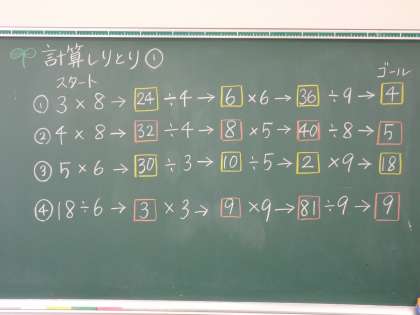 計算しりとり①
スタート ゴール
① 3×8→ 24 ÷4→ 6 ×6→ 36 ÷9→ 4
② 4×8→ 32 ÷4→ 8 ×5→ 40 ÷8→ 5
③ 5×6→ 30 ÷3→ 10 ÷5→ 2 ×9→ 18
④ 18÷6→ 3 ×3→ 9 ×9→ 81 ÷9→ 9